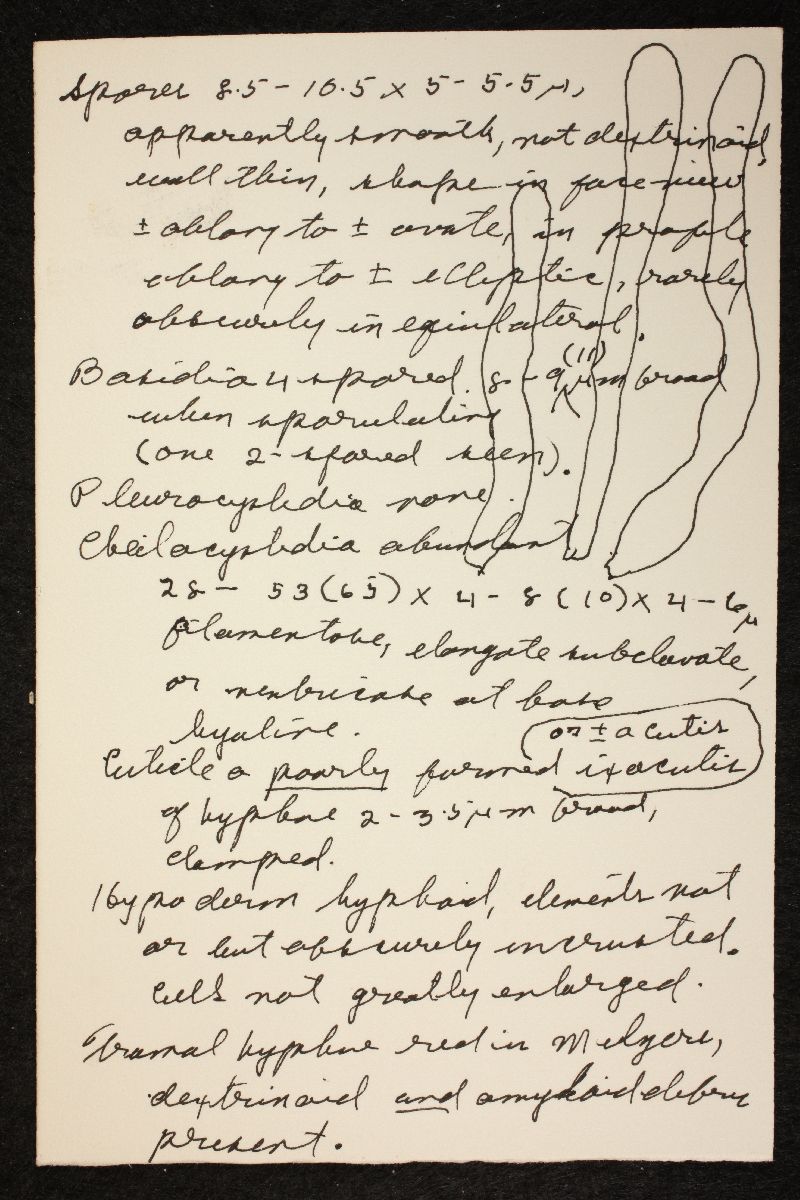 Spores 8.5-10.5 x 5-5.5 μ,
apparently smooth, not dextrinoid,
wall thin, shape in face view
± oblong to ± ovate, in profile
oblong to ± elliptic, rarely
obscurely inequilateral.
Basidia 4 spored. 8-9(11) μm broad
when sporulating
(one 2-spored seen).
Pleurocystidia none.
Cheilocystidia abundant
28- 53(65) x 4-8(10) x 4-6 μ
filamentose, elongate subclavate,
or ventricose at base
hyaline.
or ± a cutis
Cuticle a poorly formed ixocutis
of hyphae 2-3.5 μm broad,
clamped.
Hypoderm hyphoid, elements not
or but obscurely incrusted.
Cells not greatly enlarged.
Tramal hyphae red in Melzers,
dextrinoid and amyloid debris
present.